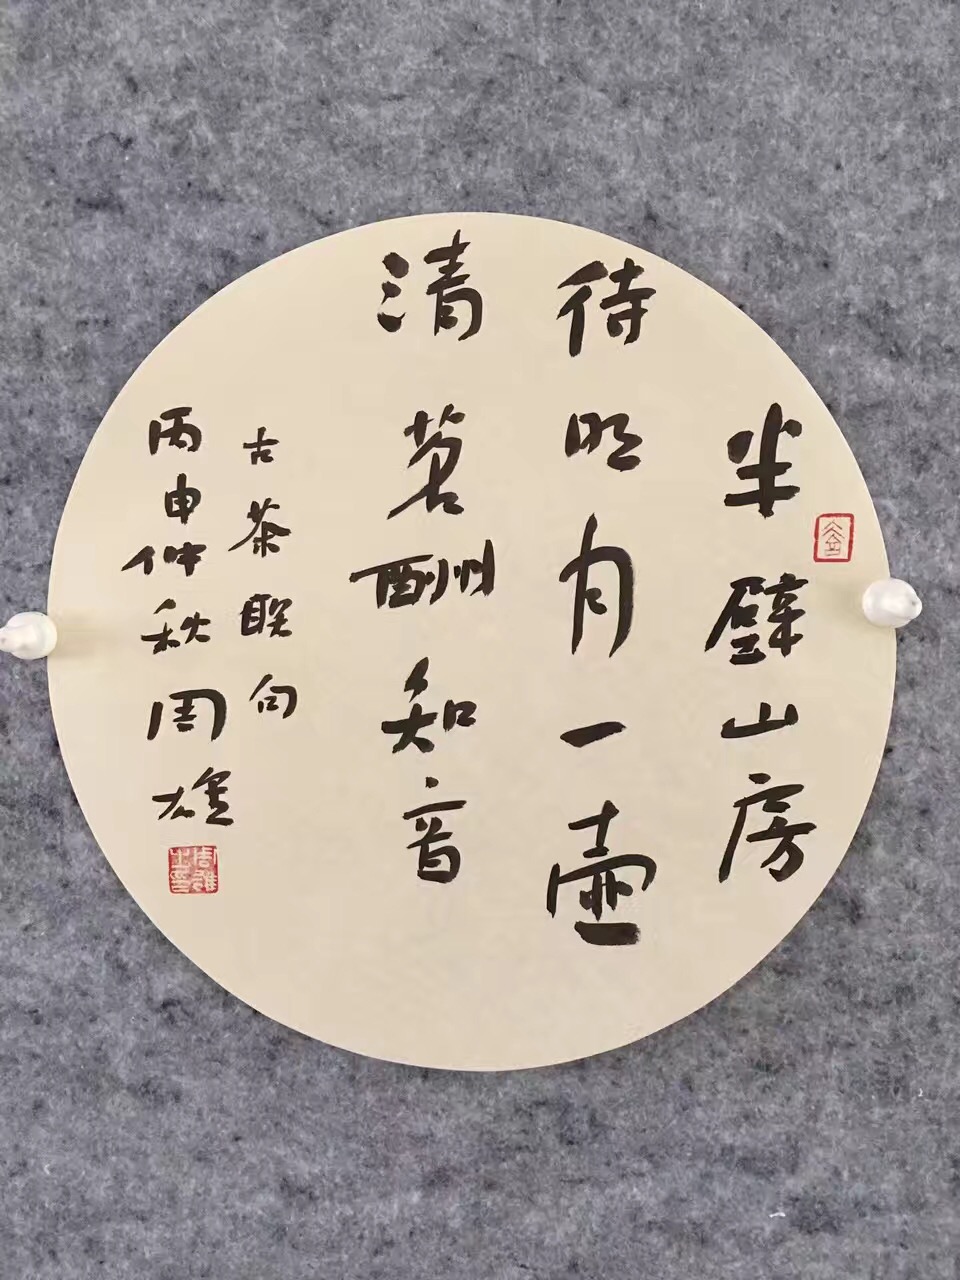 半壁山房
待明月一壶
清茗酬知音
古茶联句
丙申仲秋周雄
周雄之印